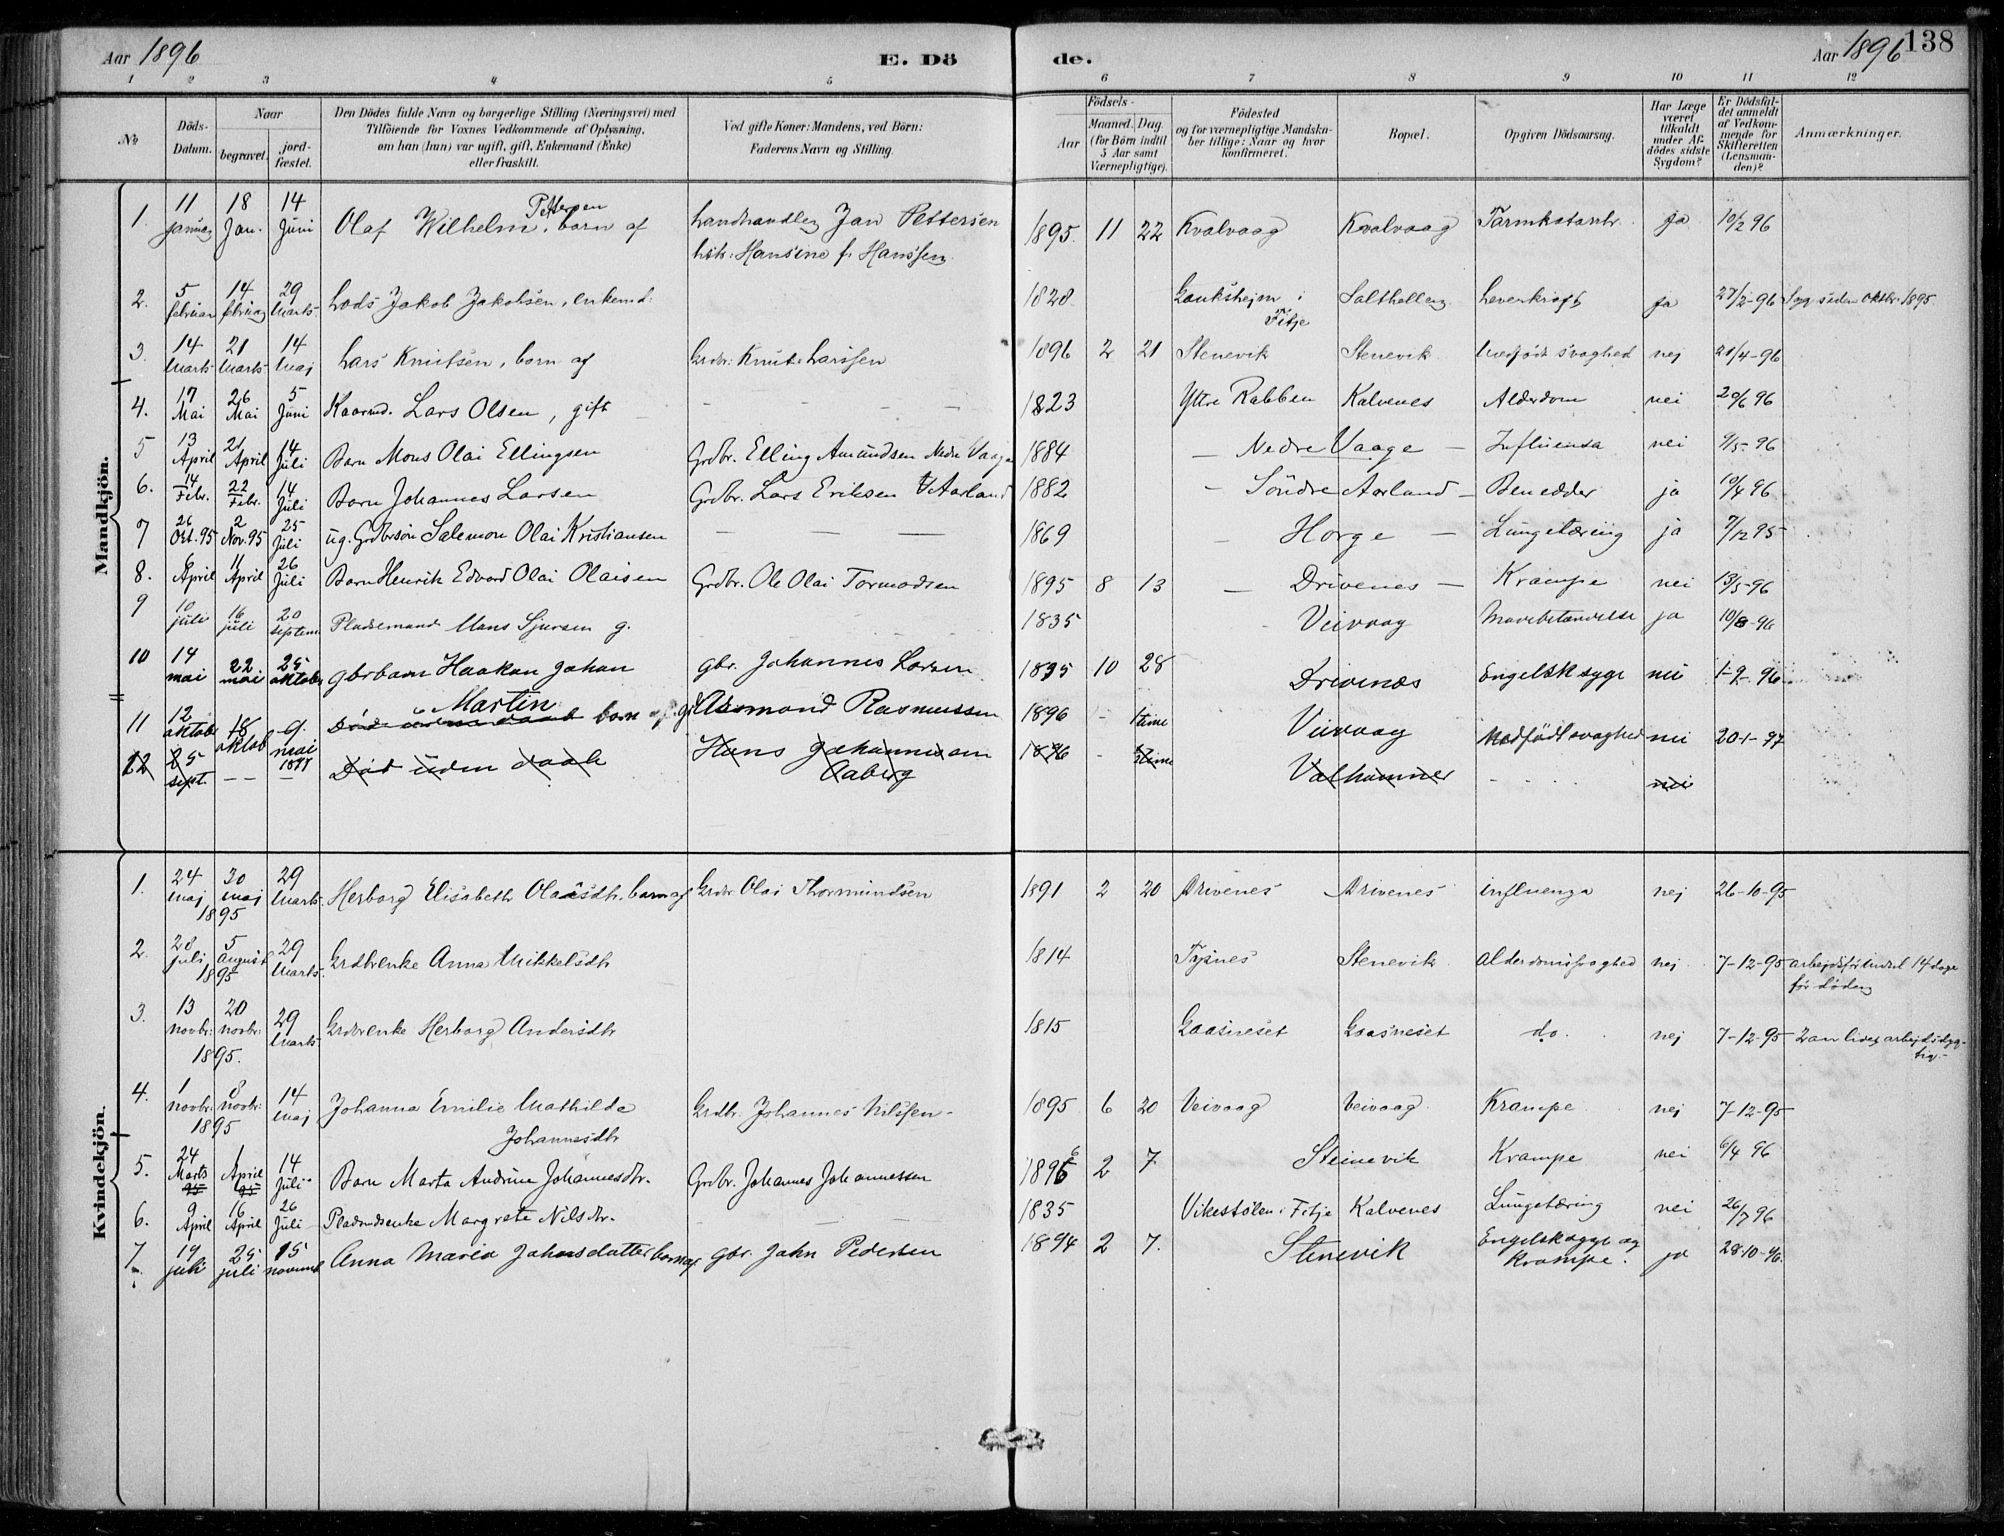 Aar 1896
E. Dö
de.
Aar 1896
138
1 2 3 4 5 6 7 8 9 10 11 12
№
Döds-Datum.
Naar
begravet.
jord-fæstet.
Den Dödes fulde Navn og borgerlige Stilling (Næringsvei) med
Tilföiende for Voxnes Vedkommende af Oplysning,
om han (hun) var ugift, gift, Enkemand (Enke)
eller fraskilt.
Ved gifte Koner: Mandens, ved Børn:
Faderens Navn og Stilling.
Födsels-
Aar
Maaned. Dag
(for Börn indtil
5 Aar samt
Værnepligtige).
Födested
og for værnepligtige Mandska-
ber tillige: Naar og hvor
konfirmeret.
Bopæl.
Opgiven Dödsaarsag.
Har Læge
været
tilkaldt
under Af-
dødes sidste
Sygdom?
Er Dödsfal-
det anmeldt
af Vedkom-
mende for
Skifteretten
(Lensman-
den)?
Anmærkninger.
Mandkjön.
1. 11 januar 18 Jan. 14 Juni Olaf Wilhelm Pettersen, barn af Landhandler Jan Pettersen 1895. 11 22 Kvalvaag Kvalvaag Tarmkatarrh. ja 10/2 96
hstr: Hansine f. Hanssen
2. 5 februar 14 februar 29 Marts Lods Jakob Jakobsen, enkemd: 1828 Gaukshejm i Fitje Salthella Leverkræft ja 27/2-96 Syg siden oktbr. 1895.
3. 14 Marts 21 Marts 14 Maj Lars Knutsen, barn af Grdbr: Knut Larssen 1896 2 21 Stenevik Stenevik Medfödt svaghed nej 21/4-96
4. 17 Mai 26 Mai 5 Juni Kaarmd. Lars Olsen, gift - - - 1823 Yttre Rabben Kalvenes Alderdom nei 20/6 96
5 13 April 21 April 14 Juli Barn Mons Olai Ellingsen Grdbr. Elling Amundsen Nedre Vaage 1884 - Nedre Vaage - Influensa nei 9/5-96
6. 14 Febr. 22 Febr. 14 Juli Barn Johannes Larsen Grdbr. Lars Eriksen Aarland 1882 - Söndre Aarland - Benedder ja 10/4 96
7 26 Oct. 95 2 Nov. 95 25 Juli ug. Grdbrsön Salemon Olai Kristiansen - - - 1869 - Horge - Lungetæring ja 7/12 95
8. 6 April 11 April 26 Juli Barn Henrik Edvard Olai Olaisen Grdbr. Ole Olai Tormodsen 1895 8 13 - Drivenes - Krampe nei 13/5-96
9 10 juli 16 juli 20 septem Pladsemand Mons Sjursen g. 1835 Veivaag Mavebetændelse ja 10/8-96
10 14 mai 22 mai 25 oktober gbrbarn Haakon Johan gbr. Johannes Larsen 1895 10 28 Drivenæs Engelsk syge nei 1-9-96
Martin
11 12 oktober 18 oktob 9. mai 1897 Död uden daab barn af gbr Asmund Rasmussen 1896 - 1 time Veivaag Medfödt svaghed nei 20-1-97
12 25 sept. - - - Död uden daab Hans Johannesson 1896 - time Valhammer - - nei
Aaberg
Kvindekjön.
1. 24 maj 1895 30 maj 29 Marts Herborg Elisabeth Olaisdtr. barn af Grdbr Olai Thormundsen 1891 2 20 Drivenes Drivenes influenza nej 26-10-95
2 28 juli 1895 5 august 29 Marts Grdbrenke Anna Mikkelsdtr 1814 Tysnes Stenevik Alderdomssvaghed nej 7-12-95 arbejdsför indtil 14 dage
för döden
3. 13 novbr: 1895. 20 novbr: 29 Marts Grdbrenke Herborg Andersdtr 1815 Gaasneset Gaasneset do. nej 7-12-95 2 aar liden arbejdsdyg-
tig.-
4. 1 novbr: 1895 8 novbr: 14 maj Johanna Emilie Mathilde Grdbr. Johannes Nilssen - 1895 6 20 Veivaag Veivaag Krampe nej 7-12-95
Johannesdtr
5. 24 Marts 95 1 April 95 14 Juli Barn Marta Andrine Johannesdtr. Grdbr. Johannes Johannessen 1896 2 7 Steinevik Krampe nei 6/4 96
6. 9 April 16 April 26 Juli Pladsmdsenke Margrete Nilsdtr. - - 1835 Vikestölen i Fitje Kalvenes Lungetæring nei 26/7 96
7 19 juli 25 juli 15 novemb Anna Maria Johnsdatter barn af gbr. John Pedersen 1894 2 7. Stenevik Engelsksyge og ja 28-10-96.
Krampe.